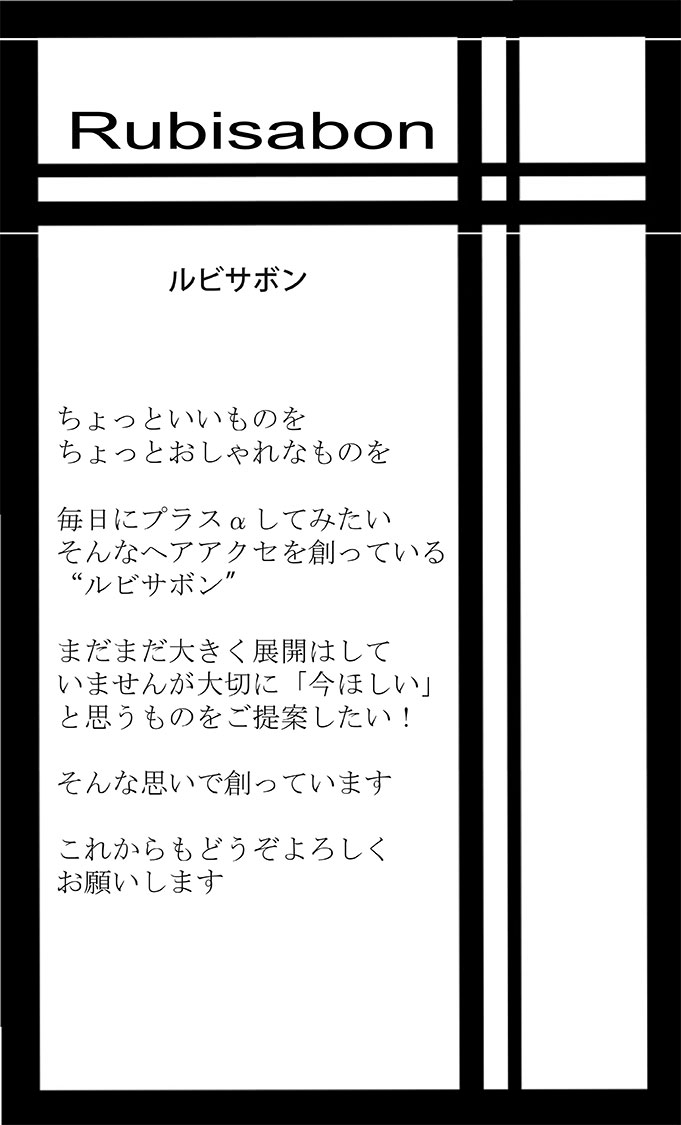 Rubisabon
ルビサボン
ちょっといいものを
ちょっとおしゃれなものを
毎日にプラスαしてみたい
そんなヘアアクセを創っている
“ルビサボン”
まだまだ大きく展開はして
いませんが大切に「今ほしい」
と思うものをご提案したい！
そんな思いで創っています
これからもどうぞよろしく
お願いします